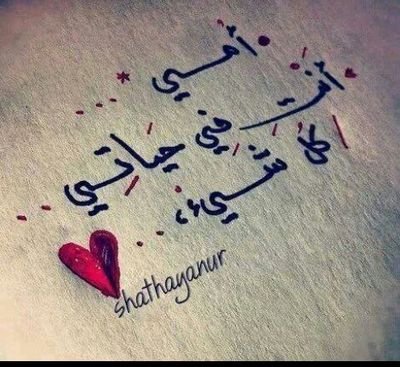 أمي
أنت
كل شيء
في حياتي
shathayanur